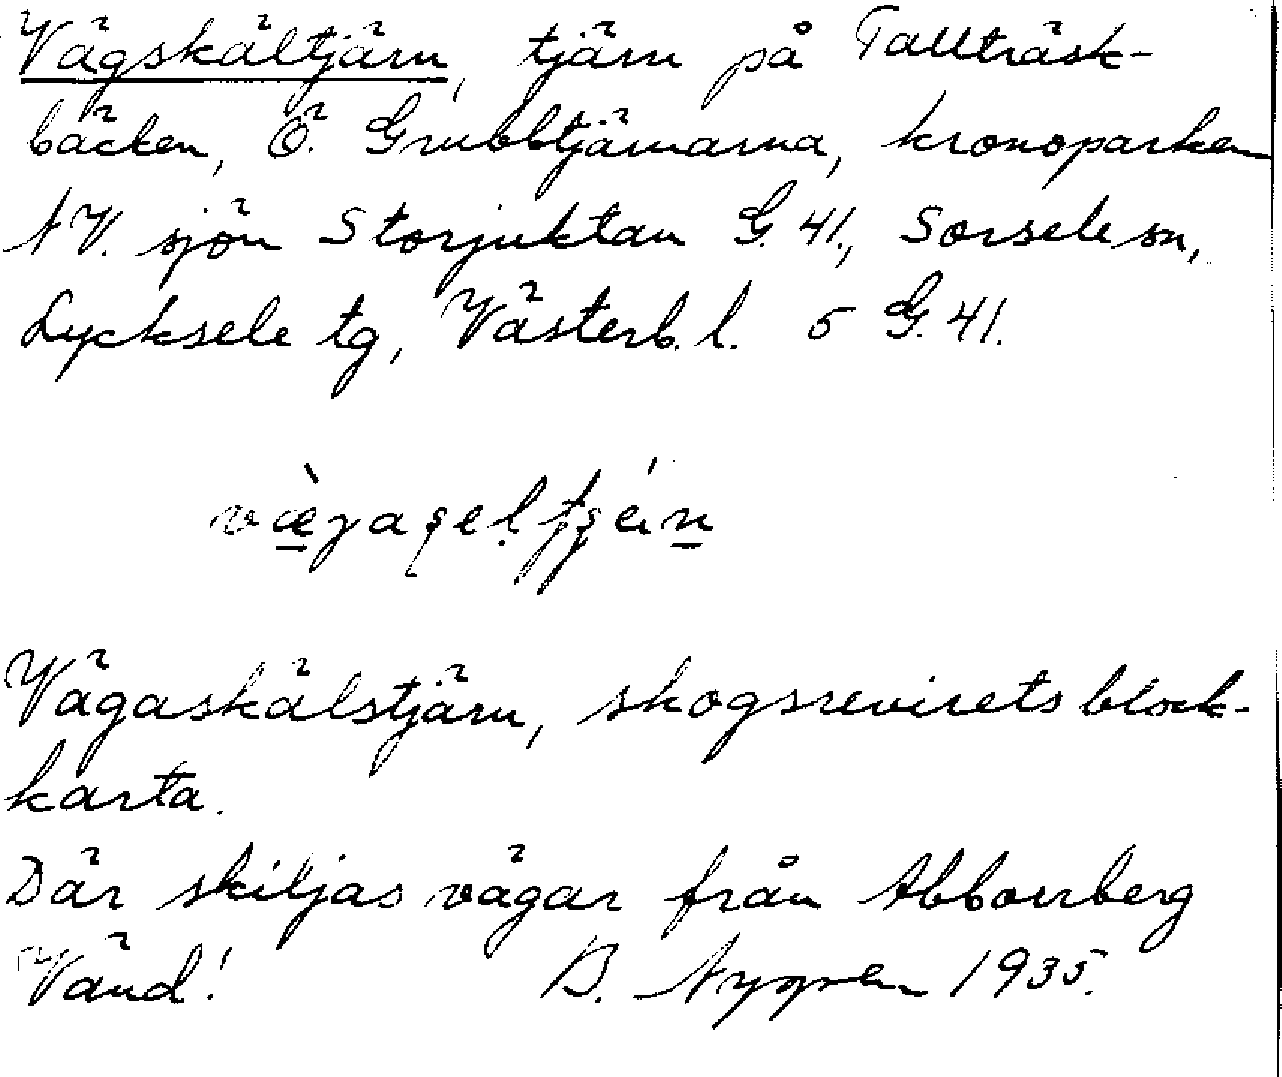 Vägskältjärn, tjärn på Tallträsk-
bäcken, Ö. Grubbtjärnarna, kronoparken
NV. sjön Storjuktan G. 41., Sorsele sn,
Lycksele tg, Västerb. l. 5 G. 41.
Vägaskälstjärn, skogsrevirets block-
karta.
Där skiljas vägar från Abborrberg
Vänd! B. Nygren 1935.